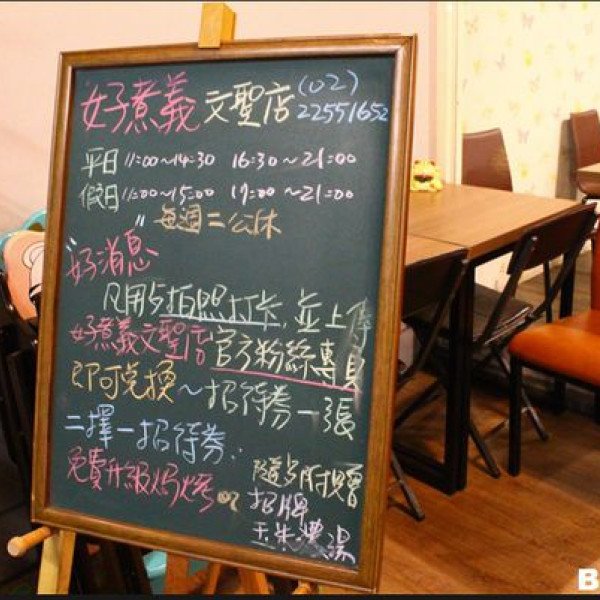 好煮義 文聖店 (02) 22551652
平日 11:00～14:30 16:30～21:00
假日 11:00～15:00 17:00～21:00
"每週二公休
"好消息
凡用餐拍照打卡，並上傳
好煮義文聖店官方粉絲專頁
即可兌換～招待券一張
二擇一招待券:
免費升級焗烤 or 隨餐附贈
招牌
玉米濃湯
B